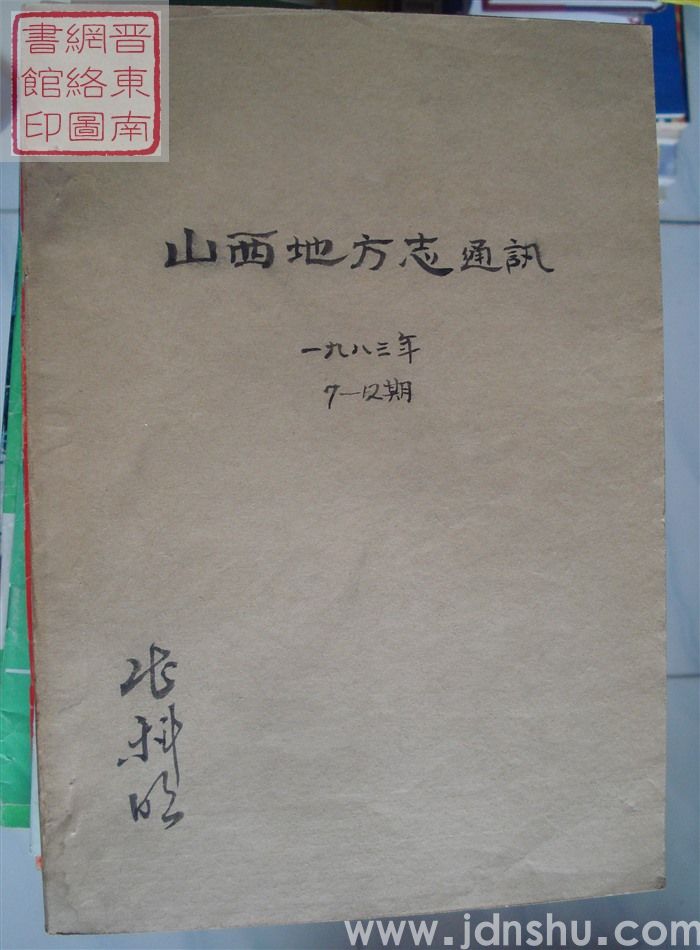 晋東南
網絡圖
書館印
山西地方志通訊
一九八三年
7—12期
张科
www.jdnshu.com